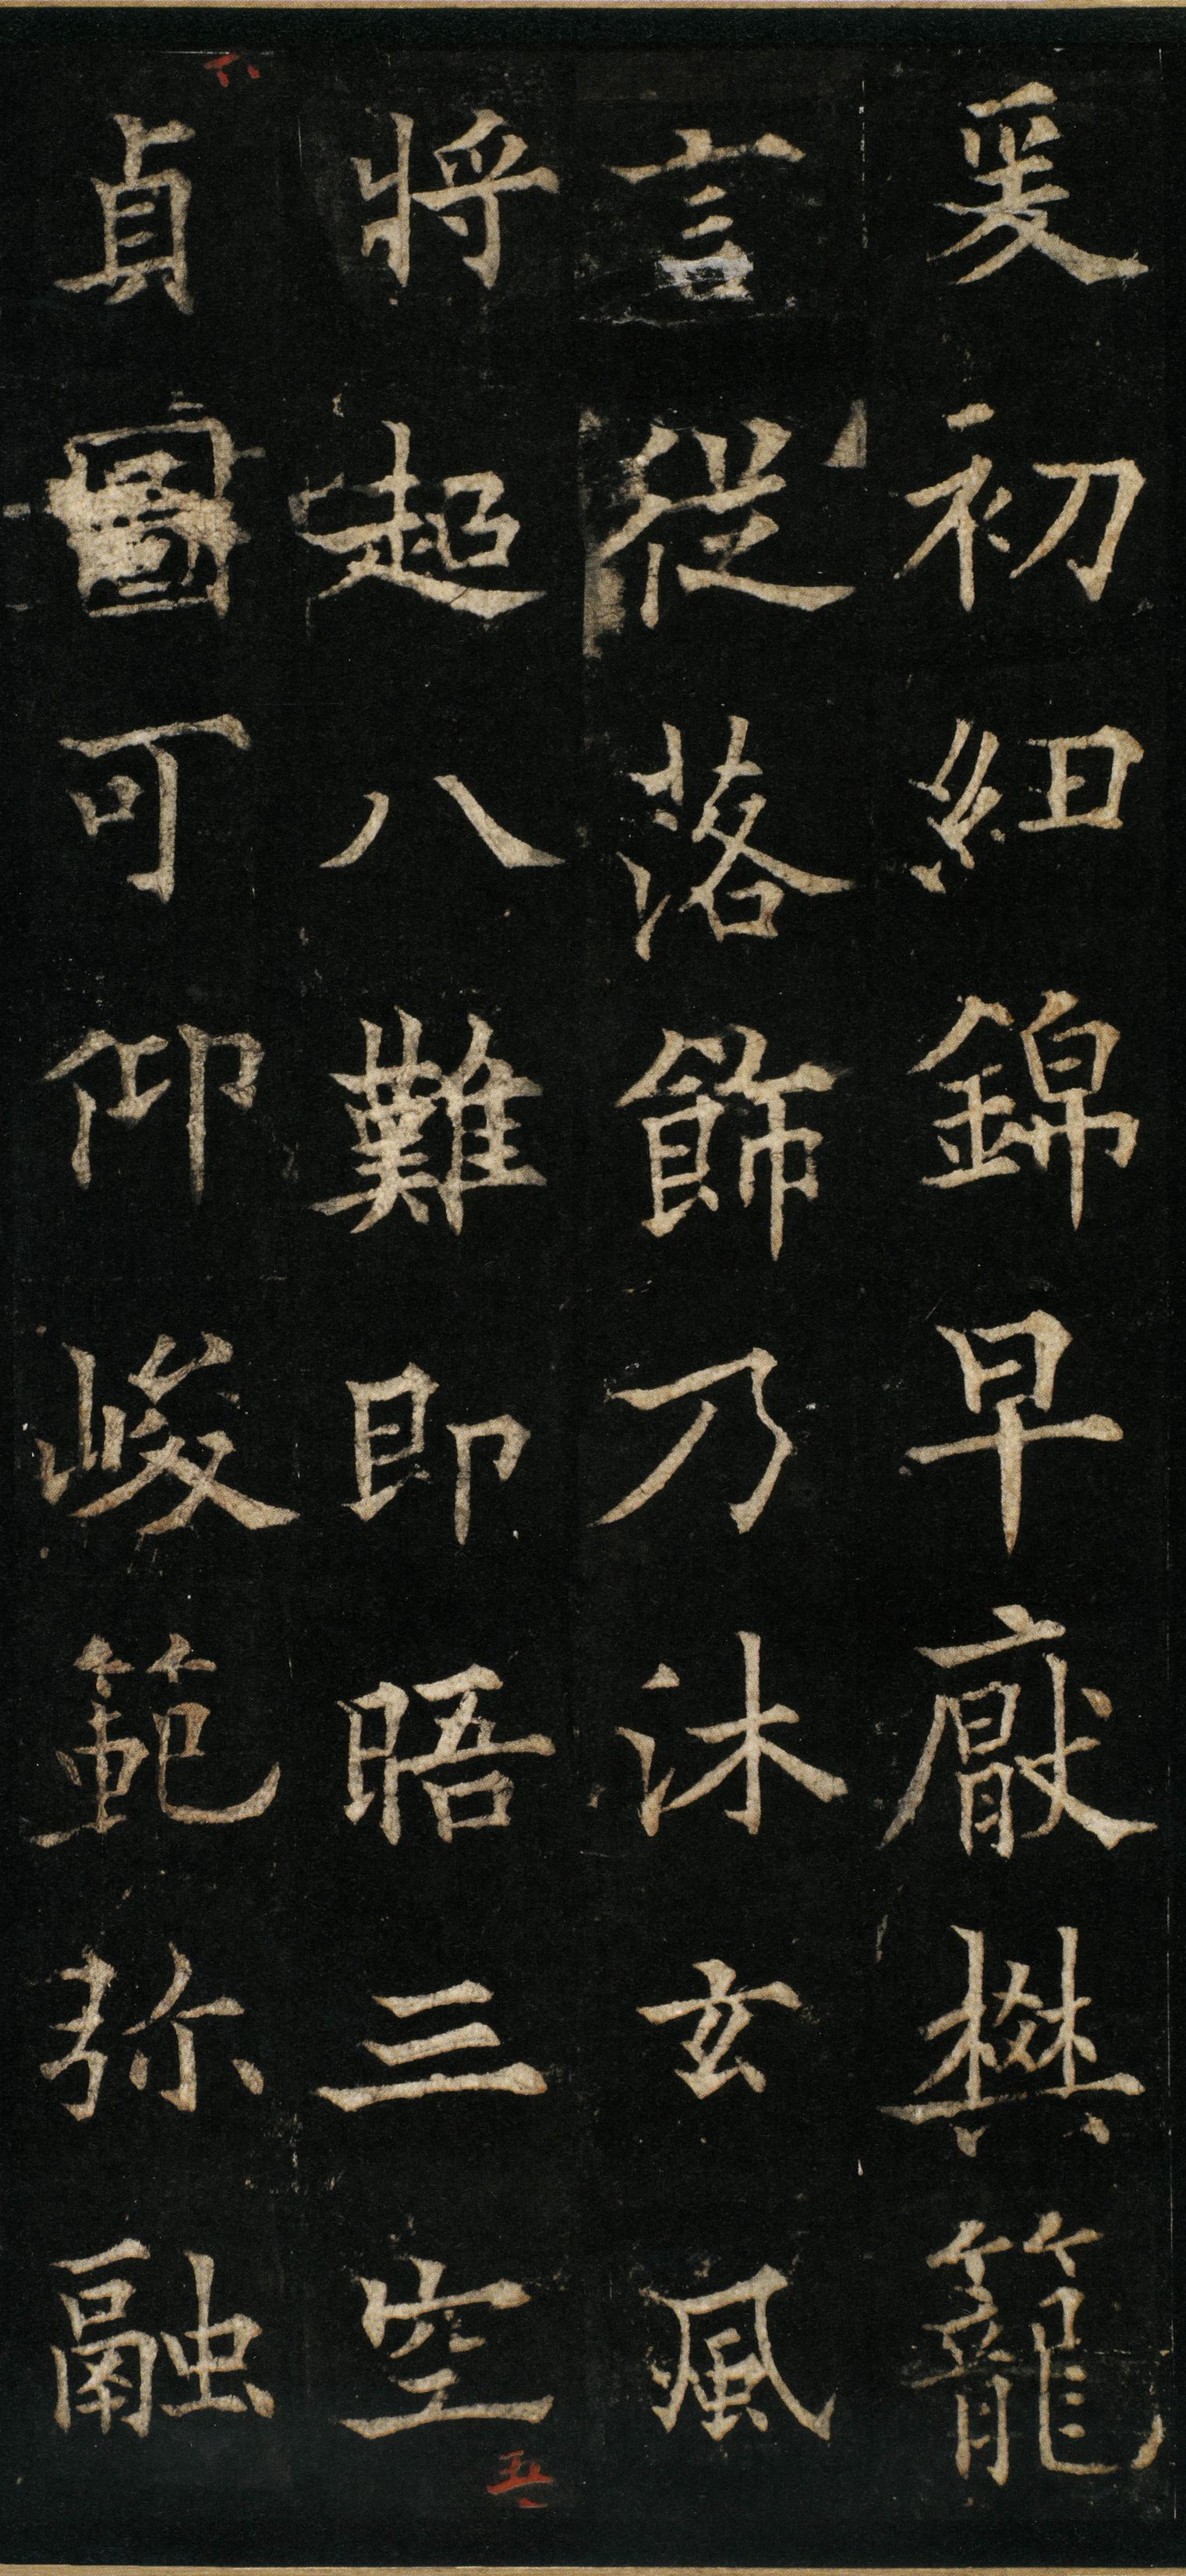 爰初紐錦早厭樊籠
言從落飾乃沐玄風
將超八難即晤三空
五
六
貞圖可仰峻範弥融